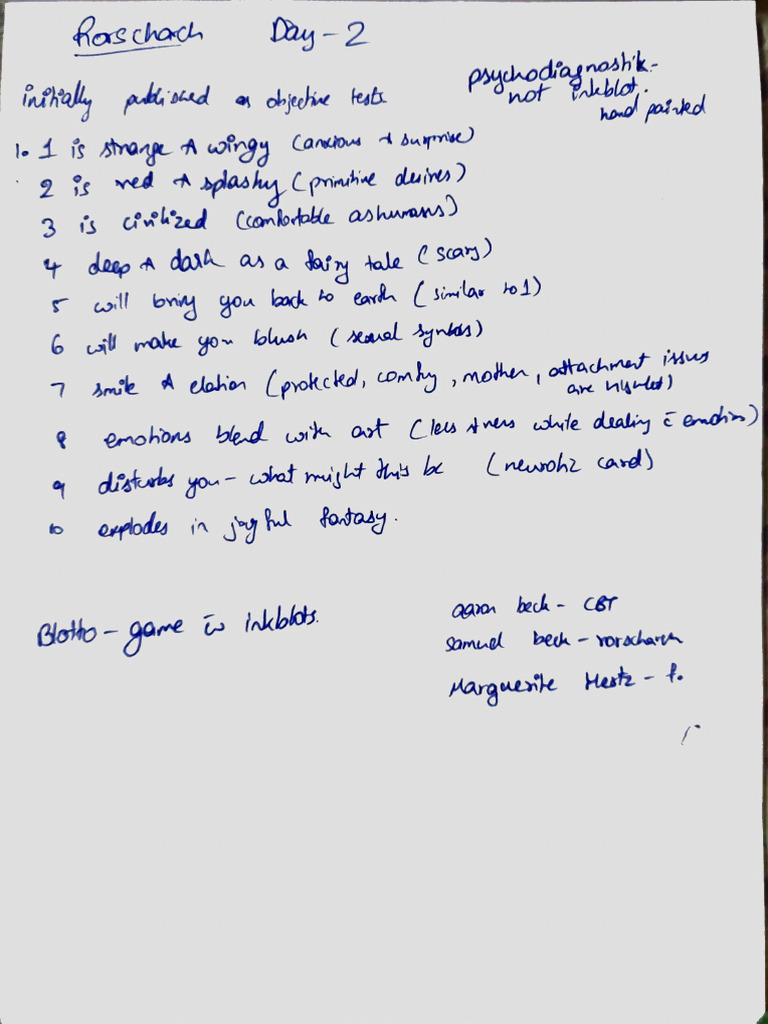 Rorscharch Day - 2
psychodiagnostik -
not inkblot.
hand painted
initially published as objective tests
1. 1 is strange & wingy (anxious & surprise)
2 is red & splashy (primitive desires)
3 is civilized (comfortable as humans)
4 deep & dark as a fairy tale (scary)
5 will bring you back to earth (similar to 1)
6 will make you blush (sexual symbols)
7 smile & elation (protected, comfy, mother, attachment issues
are highlited)
8 emotions blend with art (less stress while dealing c̄ emotions)
9 disturbs you - what might this be (card)
10 explodes in joyful fantasy.
Blotto - game c̄ inkblots.
aaron beck - CBT
samuel beck - rorscharch
Marguerite Hertz - f.